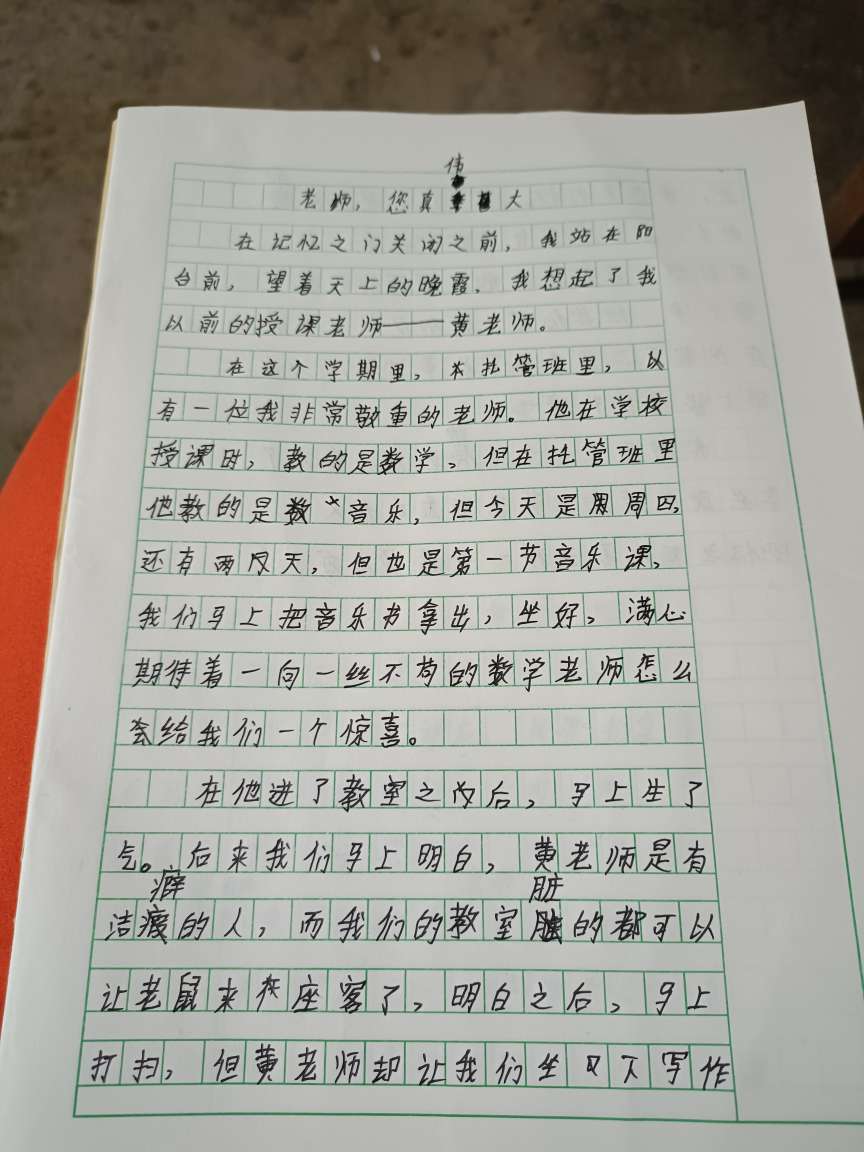 伟
老师，您真大
在记忆之门关闭之前，我站在阳
台前，望着天上的晚霞，我想起了我
以前的授课老师——黄老师。
在这个学期里，木托管班里，以
有一位我非常敬重的老师。他在学校
授课时，教的是数学，但在托管班里
他教的是数音乐，但今天是周四，
还有两天，但也是第一节音乐课，
我们马上把音乐书拿出，坐好，满心
期待着一向一丝不苟的数学老师怎么
会给我们一个惊喜。
在他进了教室之后，马上生了
气。后来我们马上明白，黄老师是有
癖 脏
洁的人，而我们的教室的都可以
让老鼠来座客了，明白之后，马上
打扫，但黄老师却让我们坐下写作